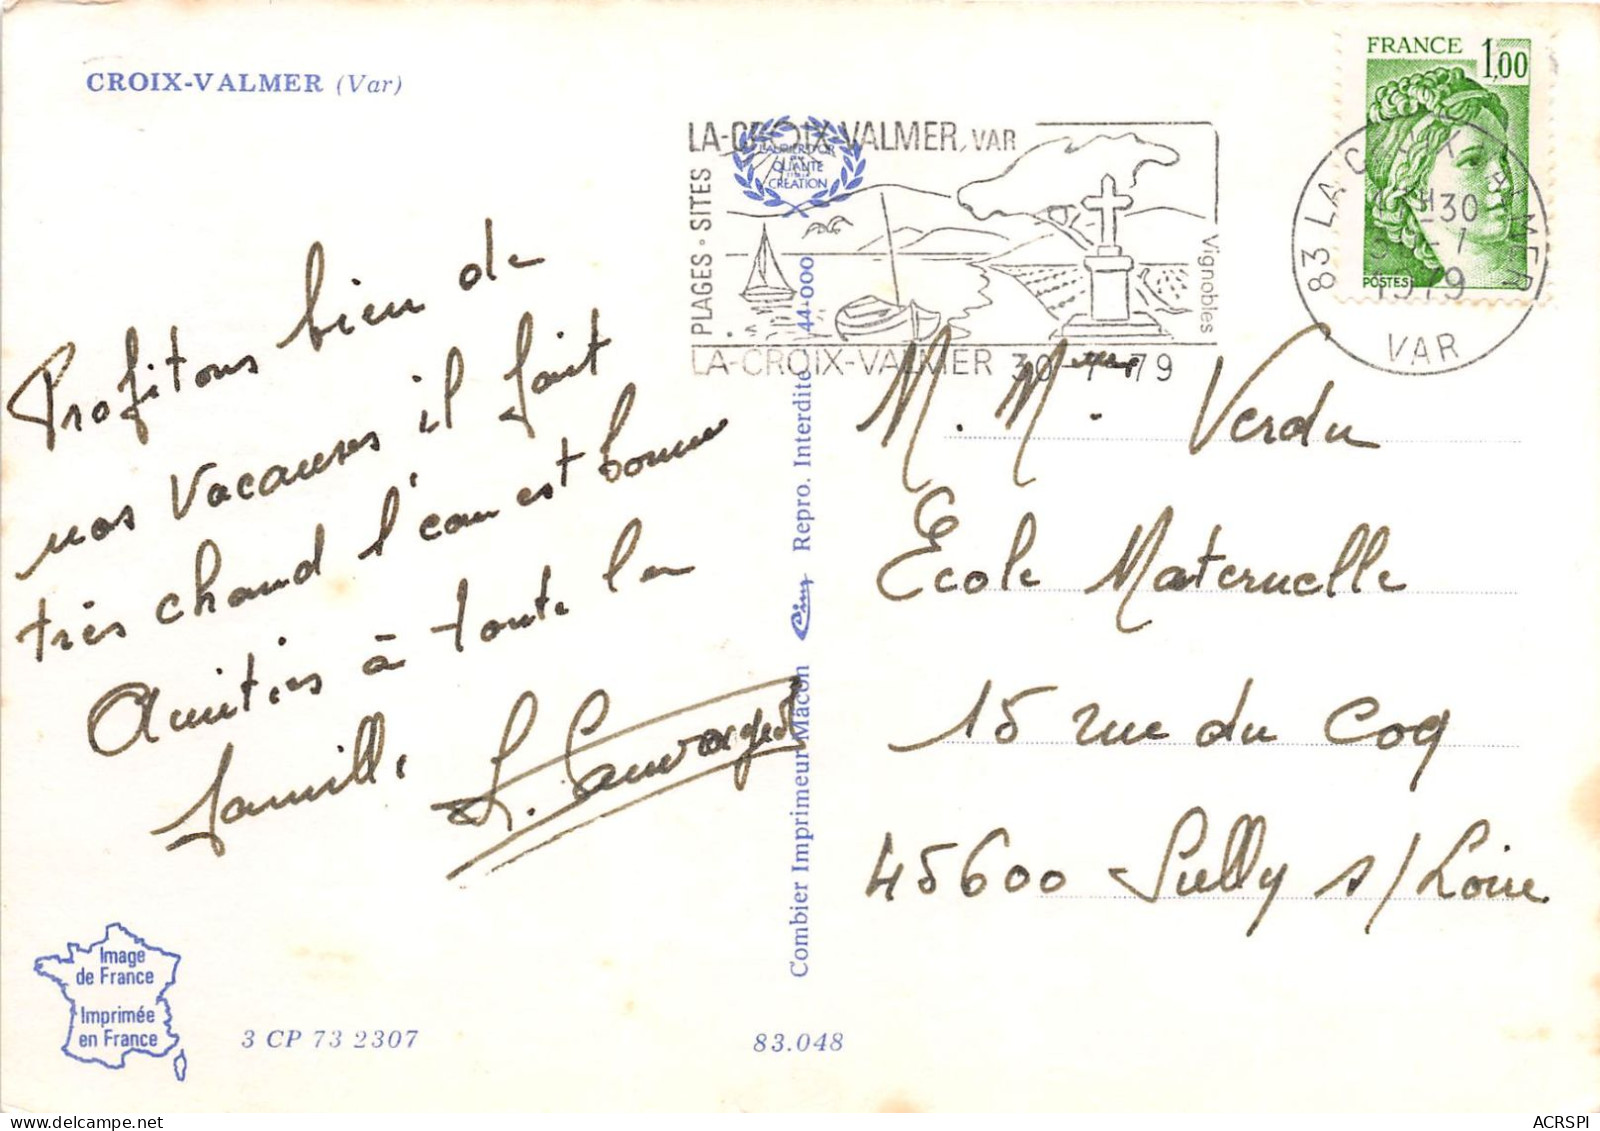 CROIX-VALMER (Var)
LA-CROIX-VALMER, VAR
PLAGES • SITES
Vignobles
LA-CROIX-VALMER 30-7-79
LAURIER D'OR
QUALITÉ
CRÉATION
FRANCE 1,00
POSTES
83 LA CROIX VALMER
H30
1979
VAR
Profitons bien de
nos vacances il fait
très chaud l'eau est bonne
Amitiés à toute la
famille
L. Sauvaget
M. Mme Verdu
Ecole Maternelle
15 rue du Coq
45600 Sully s/Loire
Combier Imprimeur Mâcon Cim Repro. Interdite 44-000
Image
de France
Imprimée
en France
3 CP 73 2307
83.048
ACRSPI